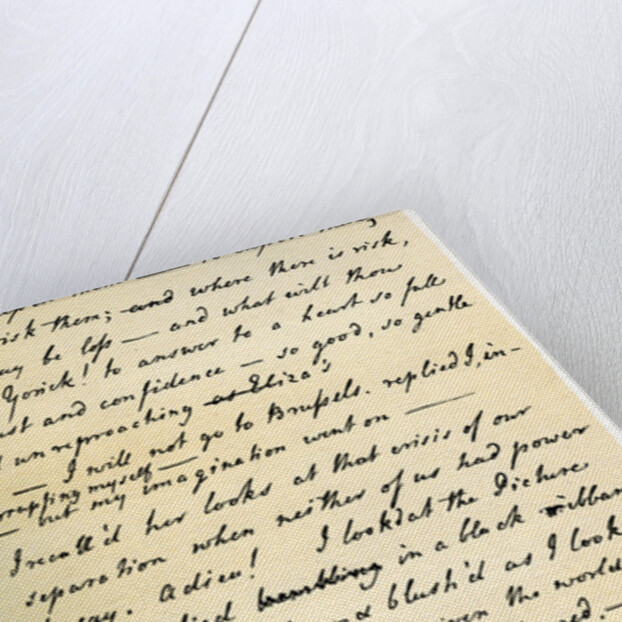 risk them; and where there is risk,
may be loss — and what will thou
Yorick! to answer to a heart so full
and confidence — so good, so gentle
unreproaching as Eliza's
— I will not go to Brussels. replied I, in-
myself —
— but my imagination went on —
I recall'd her looks at that crisis of our
separation when neither of us had power
say. adieu! I look'd at the Picture
in a black ribban
& blush'd as I look
the world